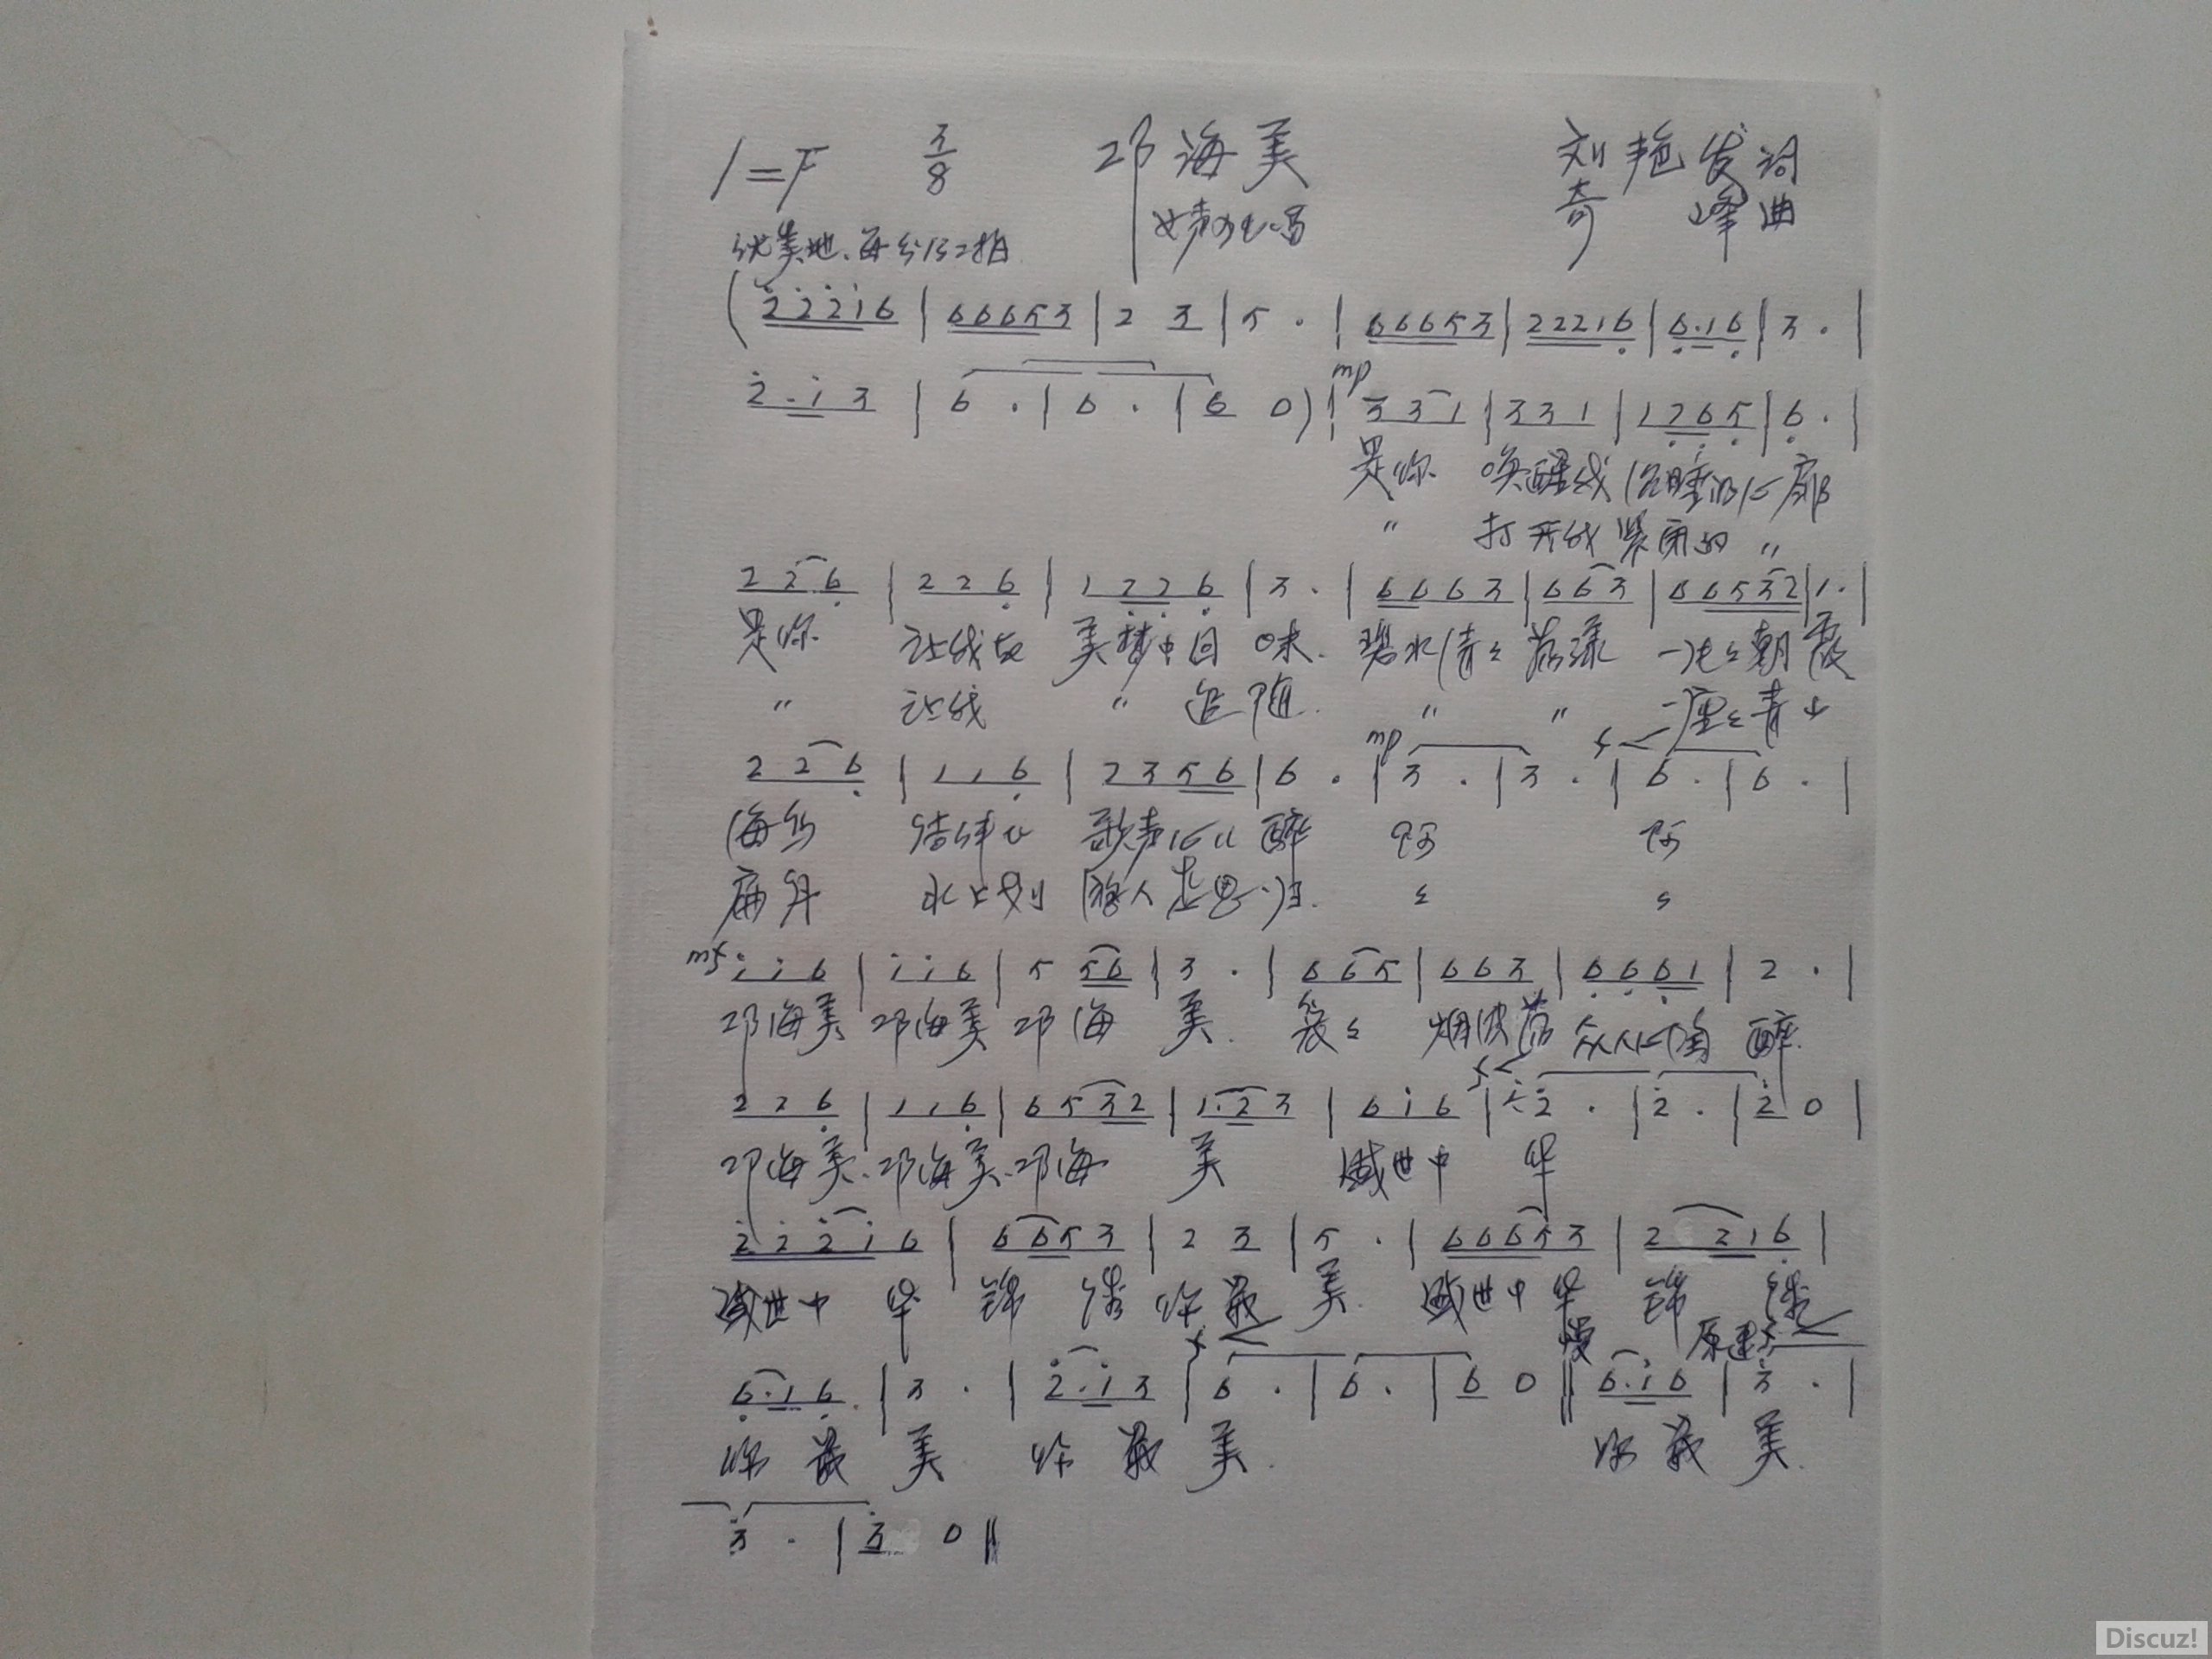 1=F 3/8 邛海美 刘艳发词
女声独唱 奇峰曲
优美地、每分132拍
(2 2 2 1 6 | 6 6 6 5 3 | 2 3 | 5 · | 6 6 6 5 3 | 2 2 2 1 6 | 6 · 1 6 | 3 · |
2 · 1 3 | 6 · | 6 · | 6 0) | mp 3 3 1 | 3 3 1 | 1 7 6 5 | 6 · |
是你 唤醒我 沉睡的心扉
〃 打开我 紧闭的 〃
2 2 6 | 2 2 6 | 1 7 7 6 | 3 · | 6 6 6 3 | 6 6 3 | 6 6 5 3 2 | 1 · |
是你 让我在 美梦中回味. 碧水清清 荡漾 一 朝霞
〃 让我 〃 追随. 〃 〃 一座座青山
2 2 6 | 1 1 6 | 2 3 5 6 | 6 · | mp 3 · | 3 · | f 6 · | 6 · |
海鸟 结伴飞 歌声 醉 啊 啊
扁舟 水上划 人 思归.
mf 1 1 6 | 1 1 6 | 5 5 6 | 3 · | 6 6 5 | 6 6 3 | 6 6 6 1 | 2 · |
邛海美 邛海美 邛海 美. 烟波荡 众人心陶醉.
2 2 6 | 1 1 6 | 6 5 3 2 | 1 · 2 3 | 6 1 6 | f 2 · | 2 · | 2 0 |
邛海美. 邛海美. 邛海 美 盛世中 华
2 2 2 1 6 | 6 6 5 3 | 2 3 | 5 · | 6 6 6 5 3 | 2 2 1 6 |
盛世中 华 锦 绣 你最 美. 盛世中 华 锦 绣
慢 原速
6 · 1 6 | 3 · | 2 · 1 3 | f 6 · | 6 · | 6 0 ‖ 6 · 1 6 | 3 · |
你 最 美 你 最 美. 你 最 美.
3 · | 3 0 ‖
Discuz!